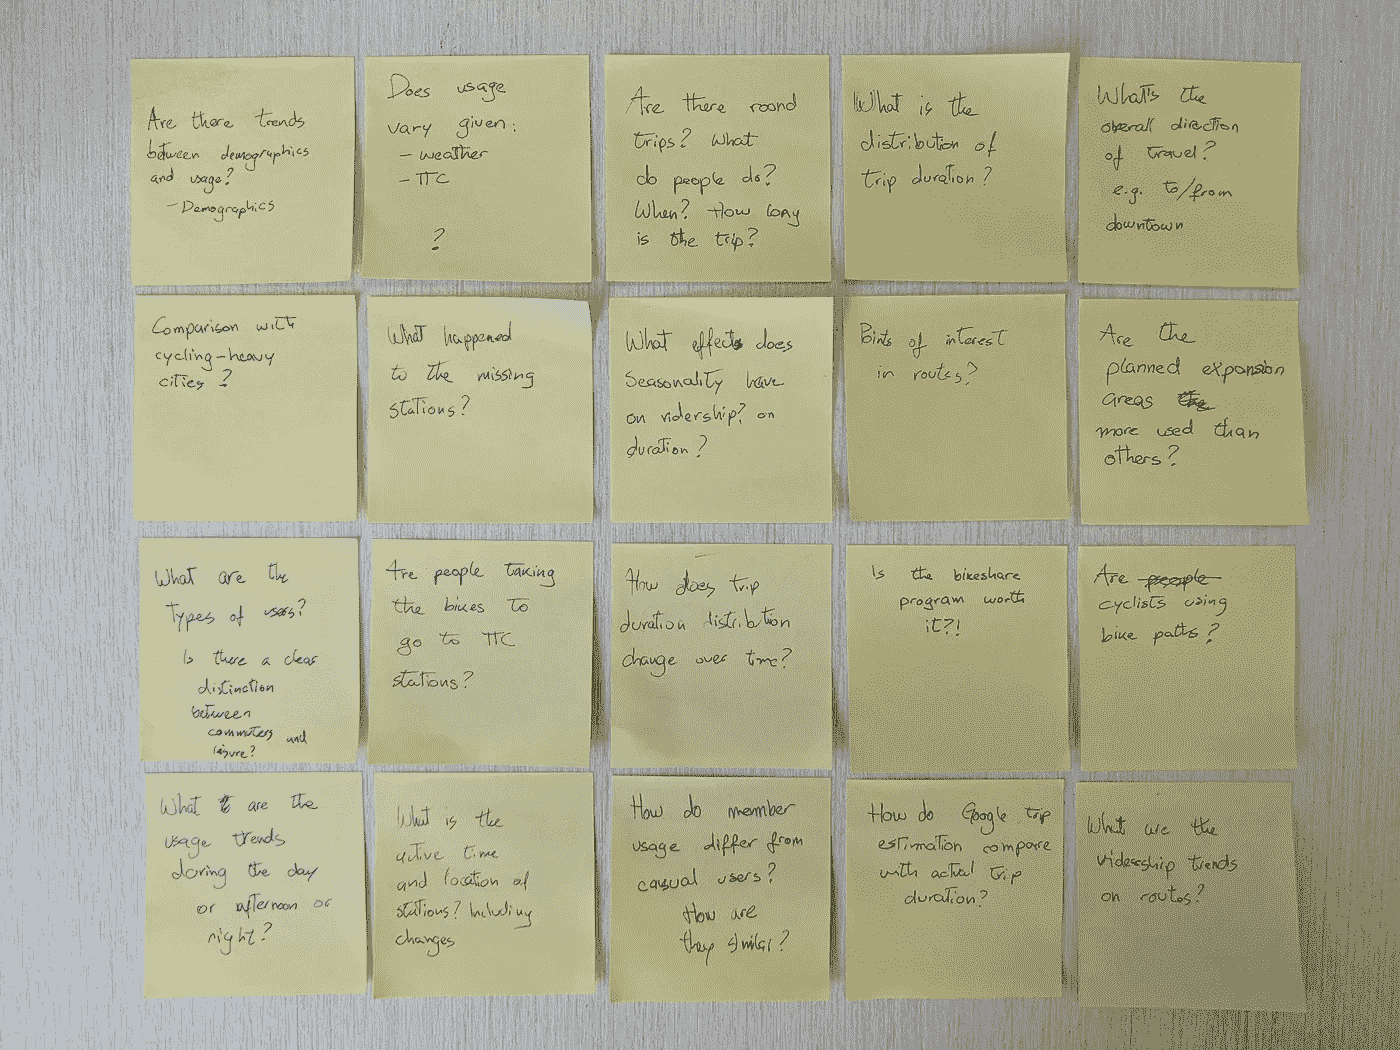 Are there trends
between demographics
and usage?
- Demographics
Does usage
vary given:
- weather
- TTC
?
Are there round
trips? What
do people do?
When? How long
is the trip?
What is the
distribution of
trip duration?
What's the
overall direction
of travel?
e.g. to/from
downtown
Comparison with
cycling-heavy
cities?
What happened
to the missing
stations?
What effects does
Seasonality have
on ridership? on
duration?
Points of interest
in routes?
Are the
planned expansion
areas the
more used than
others?
What are the
Types of users?
Is there a clear
distinction
between
commuters and
leisure?
Are people taking
the bikes to
go to TTC
stations?
How does trip
duration distribution
change over time?
Is the bikeshare
program worth
it?!
Are people
cyclists using
bike paths?
What are the
usage trends
during the day
or afternoon or
night?
What is the
active time
and location of
stations? Including
changes
How do member
usage differ from
casual users?
How are
they similar?
How do Google trip
estimation compare
with actual trip
duration?
What are the
ridership trends
on routes?